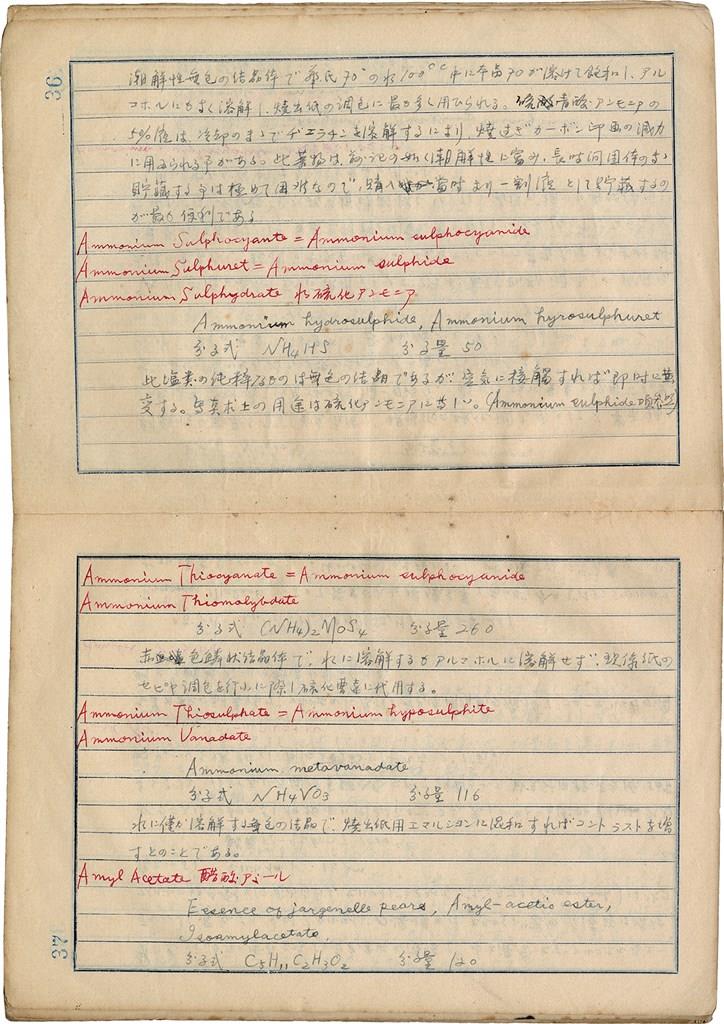 36
潮解性無色の結晶体で華氏70°の水100cc中に本品70が溶けて飽和し、アル
コホルにもよく溶解し、焼出紙の調色に最も多く用ひられる。硫青酸アンモニアの
5%液は、冷却のまゝでヂェラチンを溶解するにより、焼過ぎカーボン印画の減力
に用ゐられる事がある。此薬物は、前記の如く潮解性に富み、長時間固体のまゝ
貯蔵する事は極めて困難なので、購入当時より一割液として貯蔵するの
が最も便利である
Ammonium Sulphocyante = Ammonium sulphocyanide
Ammonium Sulphuret = Ammonium sulphide
Ammonium Sulphydrate 水硫化アンモニア
Ammonium hydrosulphide, Ammonium hyrosulphuret
分子式 NH4HS 分子量 50
此塩類の純粋なものは無色の結晶であるが、空気に接触すれば即時に黄
変する。写真術上の用途は硫化アンモニアに等しい。(Ammonium sulphide項参照)
Ammonium Thiocyanate = Ammonium sulphocyanide
Ammonium Thiomolybdate
分子式 (NH4)2MoS4 分子量 260
色鱗状結晶体で、水に溶解するもアルコホルに溶解せず、現像紙の
セピヤ調色を行ふに際し硫化曹達に代用する。
Ammonium Thiosulphate = Ammonium hyposulphite
Ammonium Vanadate
Ammonium metavanadate
分子式 NH4VO3 分子量 116
水に僅か溶解する無色の結晶で、焼出紙用エマルションに混和すればコントラストを増
すとのことである。
Amyl Acetate 醋酸アミール
Essence of jargenelle pears, Amyl-acetic ester,
Isoamylacetate.
分子式 C5H11C2H3O2 分子量 120
37